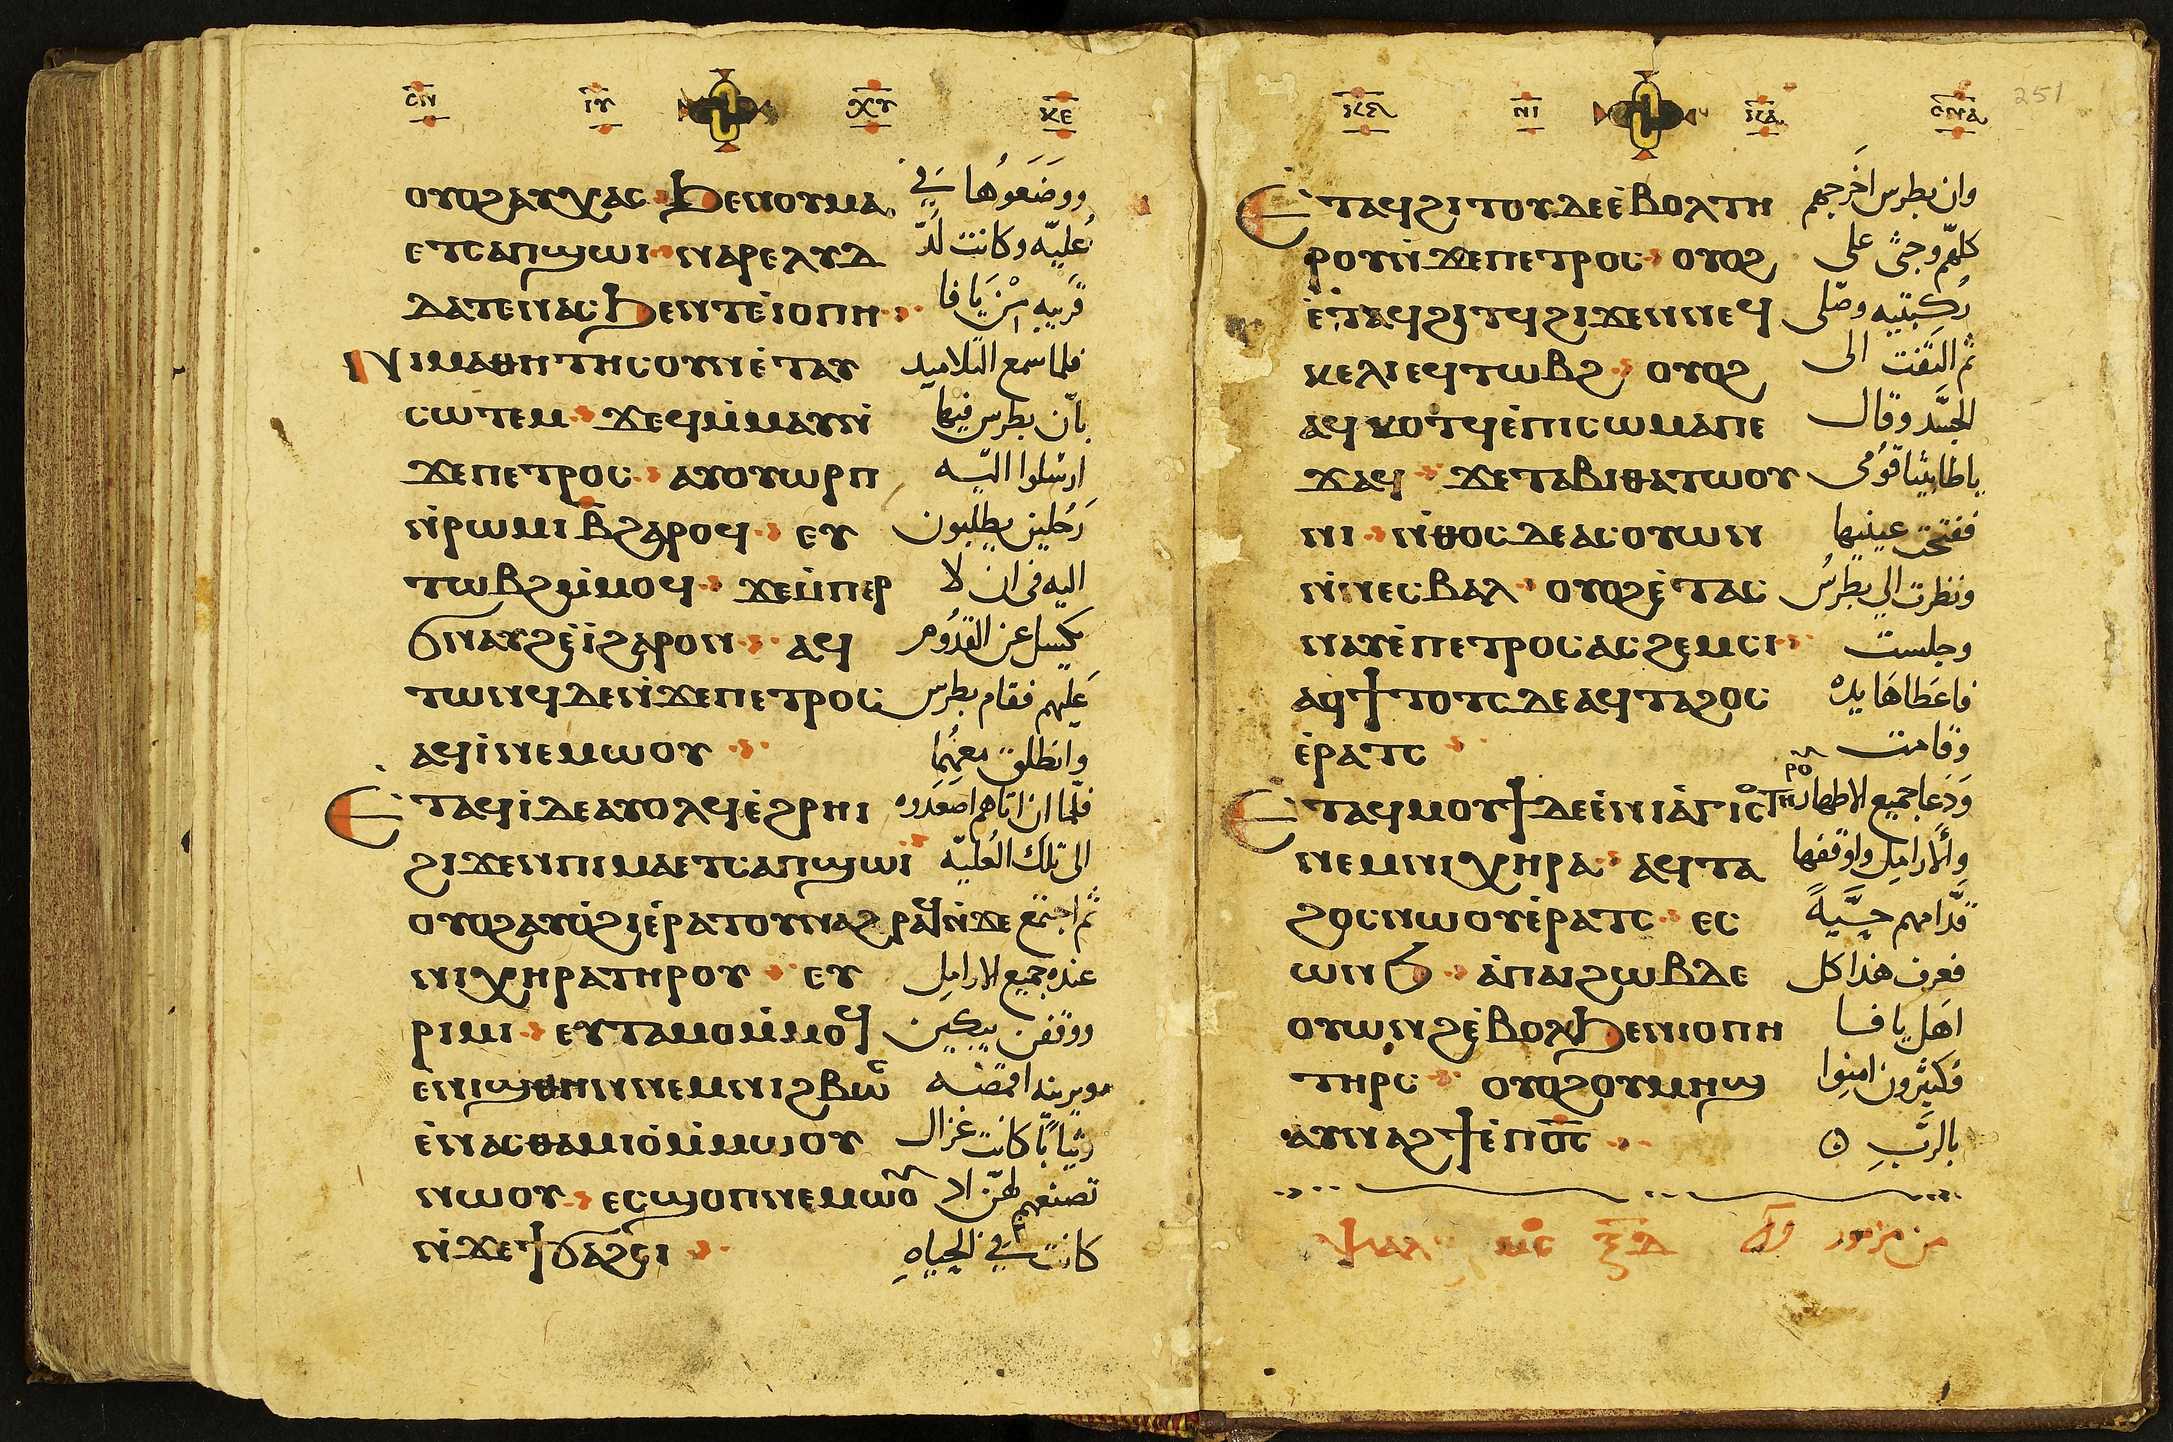 ⲥⲛ ⲓⲩ ⲭⲩ ⲕⲉ
ⲟⲩⲟϩⲁⲩⲭⲁⲥ ϧⲉⲛⲟⲩⲙⲁ
ⲉⲧⲥⲁⲡϣⲱⲓ ⲛⲁⲣⲉⲗⲩⲇ
ⲇⲁⲧⲉⲛⲁⲥϧⲉⲛⲧⲉ̇ⲓⲟⲡⲏ
ⲛⲓⲙⲁⲑⲏⲧⲏⲥⲟⲩⲛⲉ̇ⲧⲁⲩ
ⲥⲱⲧⲉⲙ ϫⲉϥⲙ̇ⲙⲁⲩⲛ̇
ϫⲉⲡⲉⲧⲣⲟⲥ ⲁⲩⲟⲩⲱⲣⲡ
ⲛ̇ⲣⲱⲙⲓⲃ̅ϩⲁⲣⲟϥ ⲉⲩ
ⲧⲱⲃϩⲙ̇ⲙⲟϥ ϫⲉⲙ̇ⲡⲉⲣ
ϭⲛⲁⲩϩⲉ̇ⲓ̇ϩⲁⲣⲟⲛ ⲁϥ
ⲧⲱⲛϥⲇⲉⲛ̇ϫⲉⲡⲉⲧⲣⲟⲥ
ⲁϥⲓ̇ⲛⲉⲙⲱⲟⲩ
ⲉⲧⲁϥⲓ̇ⲇⲉⲁⲩⲟⲗϥⲉ̇ϩⲣⲏⲓ
ϩⲓϫⲉⲛⲡⲓⲙⲁⲉⲧⲥⲁⲡϣⲱⲓ
ⲟⲩⲟϩⲁⲩⲟ̇ϩⲓⲉ̇ⲣⲁⲧⲟⲩⲛⲁϩⲣⲁϥⲛ̇ϫⲉ
ⲛⲓⲭⲏⲣⲁⲧⲏⲣⲟⲩ ⲉⲩ
ⲣⲓⲙⲓ ⲉⲩⲧⲁⲙⲟⲙ̇ⲙⲟϥ
ⲉⲛⲓϣⲑⲏⲛⲛⲉⲙⲛⲓϩⲃⲱⲥ
ⲉ̇ⲛⲁⲥⲑⲁⲙⲓⲟ̇ⲙ̇ⲙⲱⲟⲩ
ⲛⲱⲟⲩ ⲉⲥϣⲟⲡⲛⲉⲙⲱⲟⲩ
ⲛ̇ϫⲉϯϭⲁϩⲥⲓ
ووضعوها في
عليّه وكانت لدّ
قريبه من يافا
فلما سمع التلاميد
بان بطرس فيها
ارسلوا اليه
رجلين يطلبون
اليه في ان لا
يكسل عن القدوم
عليهم فقام بطرس
وانطلق معهما
فلما ان اتاهم اصعدوه
الى تلك العليّه
ثم اجتمع
عنده جميع الارامل
ووقفن يبكين
ويرينه اقمصه
وثيابا كانت غزال
تصنعهم لهنّ اد
كانت في الحياه
ⲛⲓ ⲕⲁ ⲥⲛⲁ 251
ⲉⲧⲁϥϩⲓⲧⲟⲩⲇⲉⲉ̇ⲃⲟⲗⲧⲏ
ⲣⲟⲩⲛ̇ϫⲉⲡⲉⲧⲣⲟⲥ ⲟⲩⲟϩ
ⲉ̇ⲧⲁϥϩⲓⲧϥϩⲓϫⲉⲛⲛⲉϥ
ⲕⲉⲗⲓⲉϥⲧⲱⲃϩ ⲟⲩⲟϩ
ⲁϥⲕⲟⲧϥⲉ̇ⲡⲓⲥⲱⲙⲁⲡⲉ
ϫⲁϥ ϫⲉⲧⲁⲃⲓⲑⲁⲧⲱⲟⲩ
ⲛⲓ ⲛⲑⲟⲥⲇⲉⲁⲥⲟⲩⲱⲛ
ⲛ̇ⲛⲉⲥⲃⲁⲗ ⲟⲩⲟϩⲉ̇ⲧⲁⲥ
ⲛⲁⲩⲉ̇ⲡⲉⲧⲣⲟⲥⲁⲥϩⲉⲙⲥⲓ
ⲁϥϯⲧⲟⲧⲥⲇⲉⲁϥⲧⲁϩⲟⲥ
ⲉ̇ⲣⲁⲧⲥ
ⲉⲧⲁϥⲙⲟⲩϯⲇⲉⲉ̇ⲛⲓⲁ̇ⲅⲓⲟⲥⲧⲏⲣⲟⲩ
ⲛⲉⲙⲛⲓⲭⲏⲣⲁ ⲁϥⲧⲁ
ϩⲟⲥⲛⲱⲟⲩⲉ̇ⲣⲁⲧⲥ ⲉⲥ
ⲱⲛϧ ⲁ̇ⲡⲁⲓϩⲱⲃⲇⲉ
ⲟⲩⲱⲛϩⲉ̇ⲃⲟⲗϧⲉⲛⲓⲟⲡⲏ
ⲧⲏⲣⲥ ⲟⲩⲟϩⲟⲩⲙⲏϣ
ⲁⲩⲛⲁϩϯⲉ̇ⲡⲟ̅ⲥ̅
وان بطرس اخرجهم
كلهم وجثى على
ركبتيه وصلى
ثم التفت الى
الجسد وقال
ياطابيثا قومى
ففتحت عينيها
ونظرت الى بطرس
وجلست
فاعطاها يده
وقامت
ودعا جميع الاطهار
والارامل واوقفها
قدامهم حيّة
فعرف هذا كل
اهل يافا
وكثيرون امنوا
بالرب
ⲯⲁⲗ ⲝ̅ⲇ̅ من مزمور